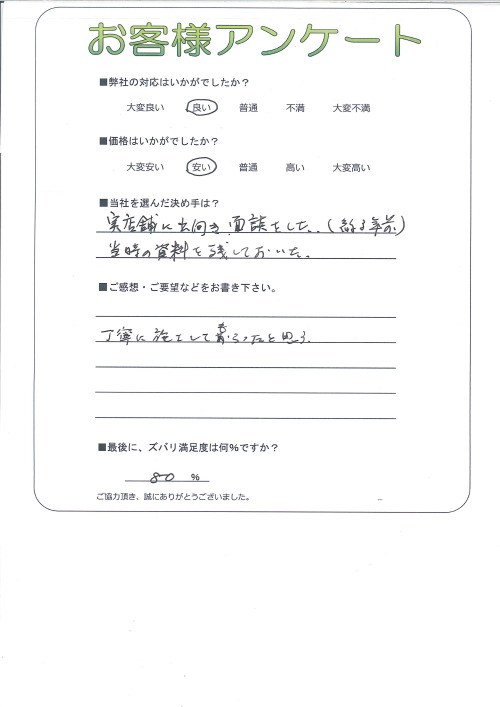 お客様アンケート
■弊社の対応はいかがでしたか？
大変良い 良い 普通 不満 大変不満
■価格はいかがでしたか？
大変安い 安い 普通 高い 大変高い
■当社を選んだ決め手は？
実店舗に出向き面談をした。(約3年前)
当時の資料を残しておいた。
■ご感想・ご要望などをお書き下さい。
丁寧に施工して貰ったと思う。
■最後に、ズバリ満足度は何％ですか？
80 %
ご協力頂き、誠にありがとうございました。